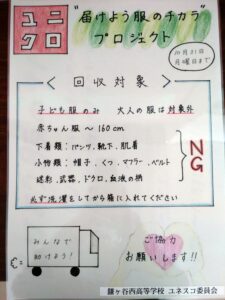 ユニクロ
"届けよう服のチカラ"
プロジェクト
10月31日
月曜日まで
回収対象
子ども服のみ 大人の服は対象外
赤ちゃん服～160cm
下着類：パンツ、靴下、肌着
小物類：帽子、くつ、マフラー、ベルト
迷彩、武器、ドクロ、血液の柄
NG
必ず洗濯をしてから箱に入れてください
みんなで
助けよう！
ご協力
お願いします!!
鎌ヶ谷西高等学校 ユネスコ委員会